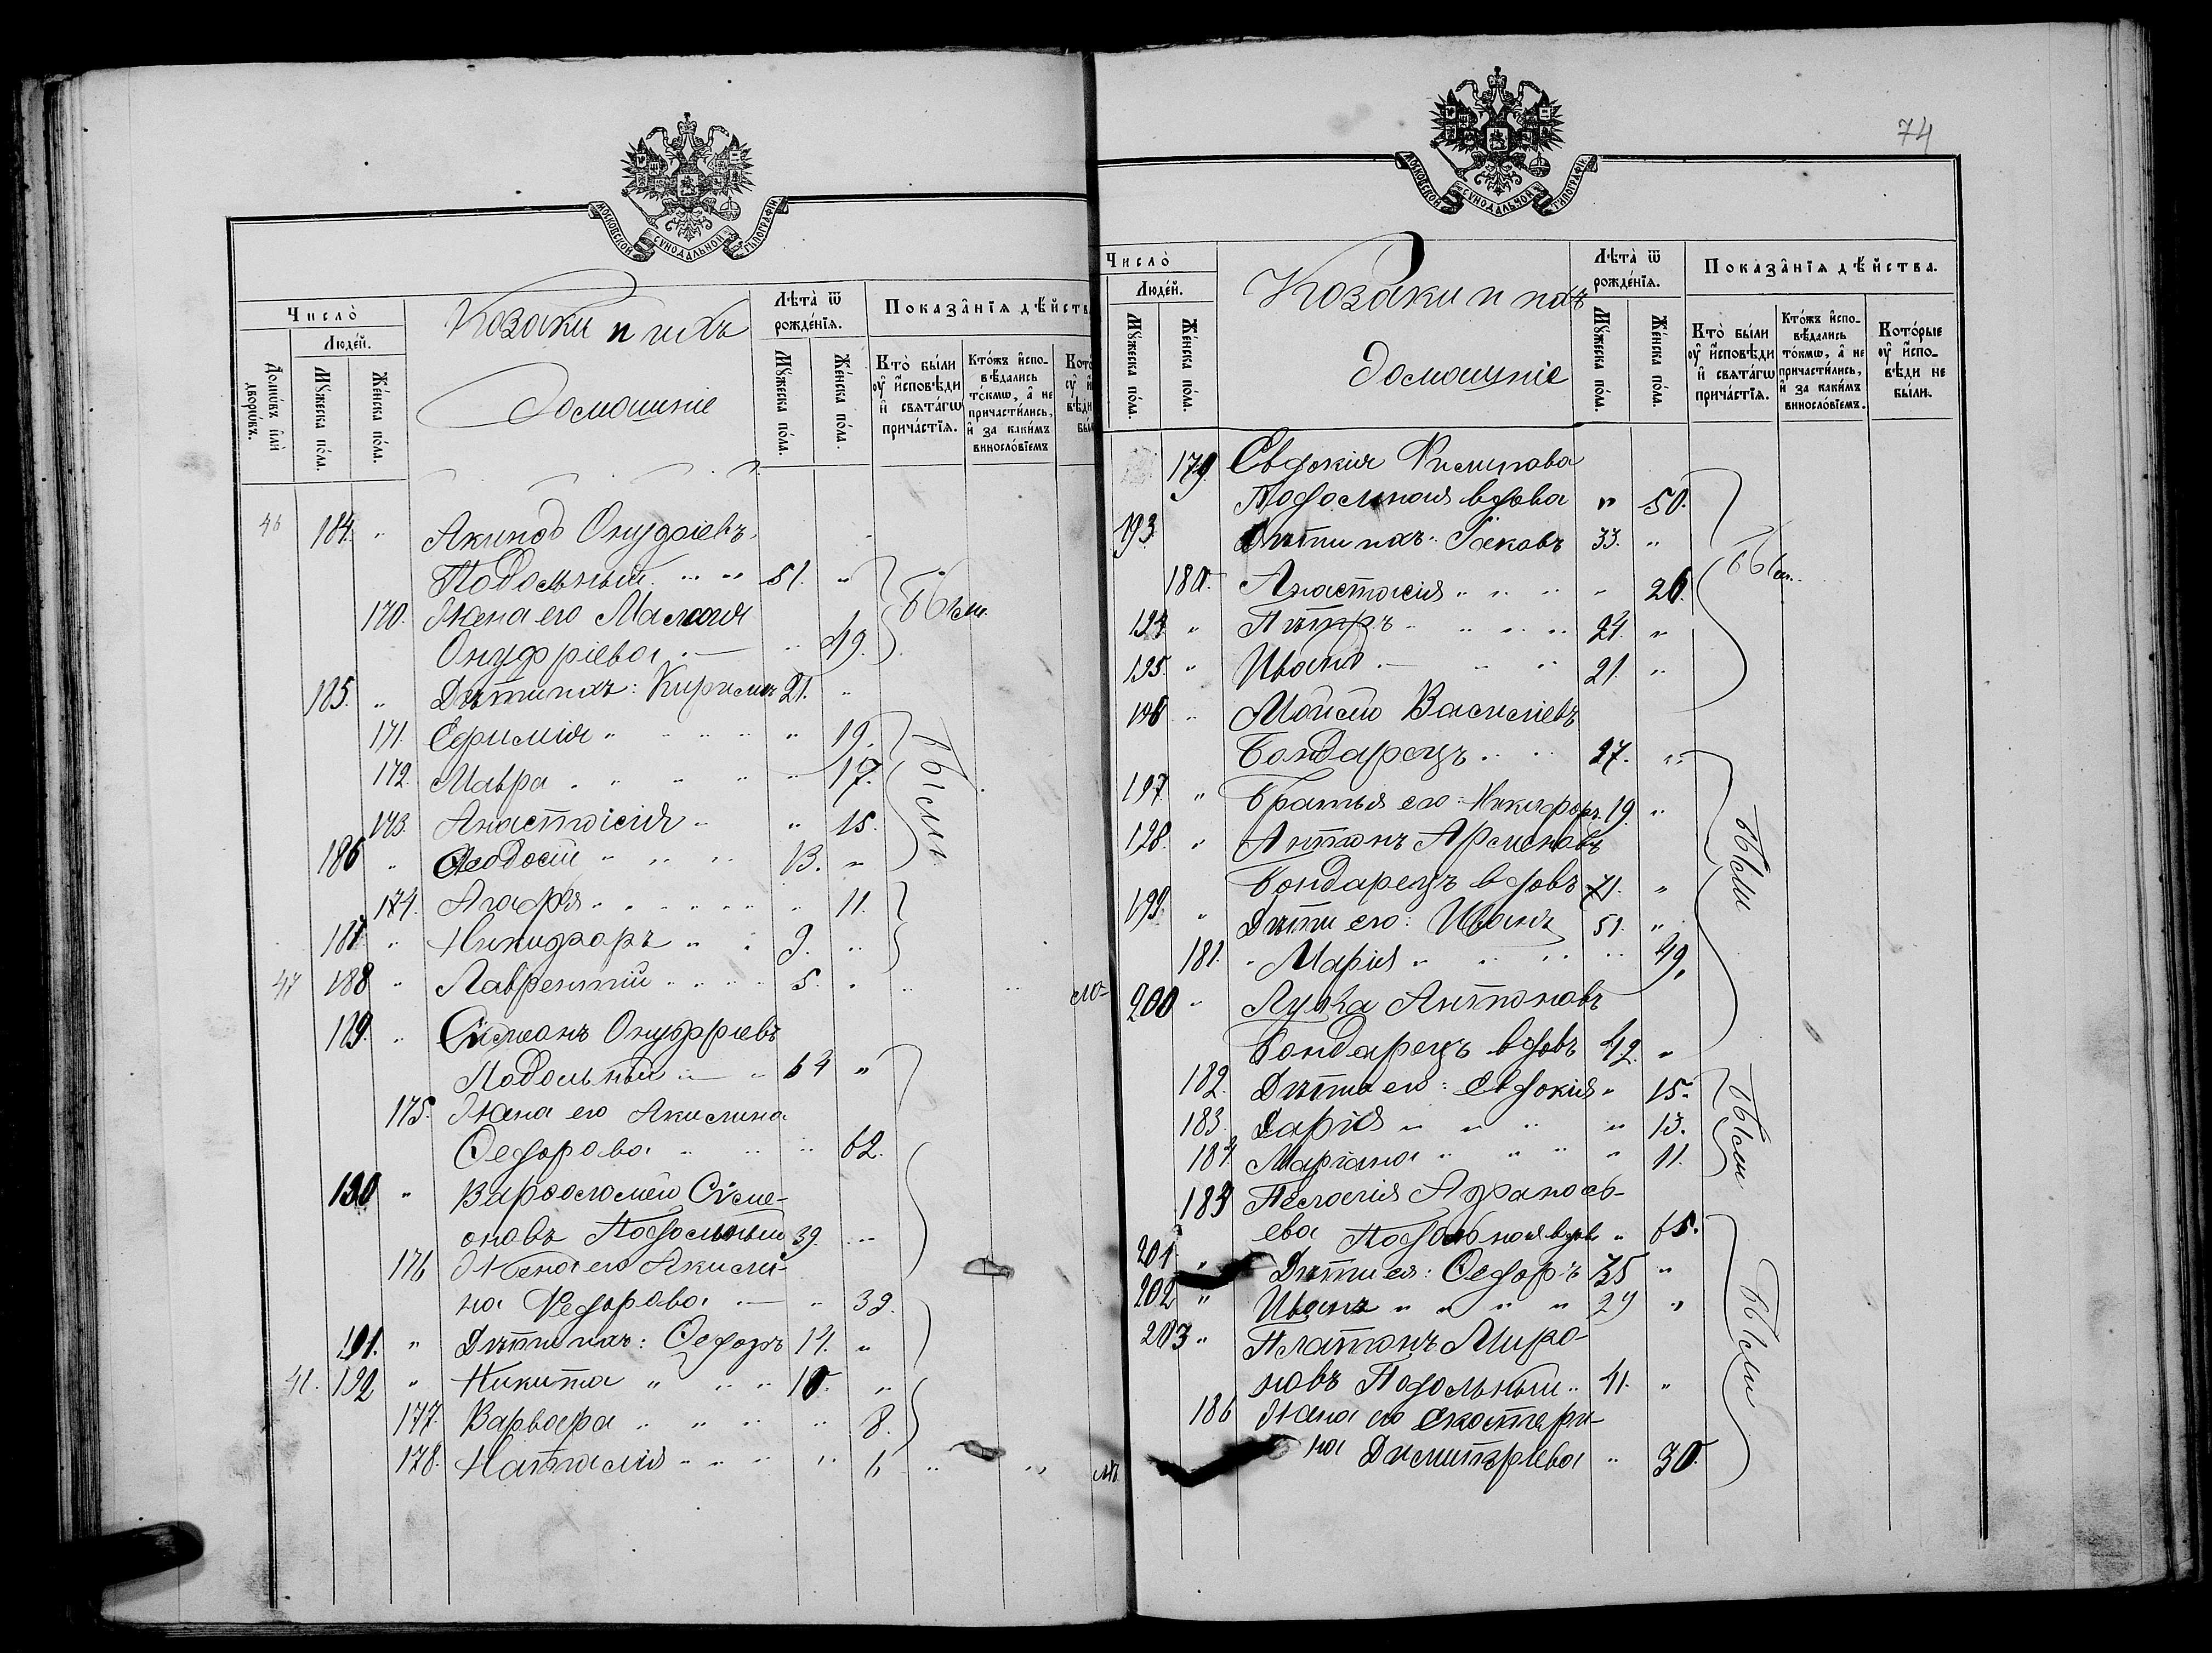 МОСКОВСКОЙ СУНОДАЛЬНОЙ ТИПОГРАФІИ
Число̀
Людей.
Домѡвъ или дворѡвъ.
Мꙋжеска пола.
Женска пола.
Козаки и ихъ
домашніе
Лѣта̀ ѿ рожденїѧ.
Мꙋжеска пола.
Женска пола.
Показанїѧ дѣйств
Кто̀ были оу҆ исповѣди и свѧтагѡ причастїѧ.
Ктожъ исповѣдались токмѡ, а не причастились, и за какимъ винословїемъ
46 184. " Акимъ Онуфріевъ
Подольный " " 51. "
170. Жена его
Онуфріева — " 49.
Были
185. " Дѣти ихъ: Кирилъ 21. "
171. Ефимія " " " " 19.
172. Мавра " " " " 17.
173. Анастасія " " 15.
186 " Ѳеодосій " " " 13. "
Были
174. Агафія " " " " 11.
187 " Никифоръ " " 9. "
47 188 " Лаврентій " " " 5. " " " мо-
189. " Сѵмеонъ Онуфріевъ
Подольный — " 64 "
175. Жена его Акилина
Ѳедорова " " " 62.
190 " Варѳоломей Сѵме-
оновъ Подольный 39. "
176 Жена его Акили-
на Ѳедорова — " 39.
191. " Дѣти ихъ: Ѳедоръ 14. "
41. 192 " Никита " " " 10. "
177. Варвара " " " " 8.
178. Наталія " " " " 6 " "
74
МОСКОВСКОЙ СУНОДАЛЬНОЙ ТИПОГРАФІИ
Число̀
Людей.
Мꙋжеска пола.
Женска пола.
Козаки и ихъ
домашніе
Лѣта̀ ѿ рожденїѧ.
Мꙋжеска пола.
Женска пола.
Показанїѧ дѣйства.
Кто̀ были оу҆ исповѣди и свѧтагѡ причастїѧ.
Ктожъ исповѣдались токмѡ, а не причастились, и за какимъ винословїемъ.
Которые оу҆ исповѣди не были.
179. Евдокія Филипова
Подольная вдова " 50.
193. Дѣти ихъ: Іаковъ 33. "
180. Анастасія " " " " 26.
Были
194 " Пётръ " " " " 24. "
195. " Иванъ — " " 21. "
196 " Мойсей Василіевъ
Бондарецъ " " 27. "
197. " Братья его: Никифоръ 19. "
198. " Антонъ
Бондарецъ вдовъ 71. "
199. " Дѣти его: Иванъ 51. "
Были
181. " Марія " " " " 49.
200 " Лука Антоновъ
Бондарецъ вдовъ 42. "
182. Дѣти его: Евдокія " 15.
183. Дарія " " " " 13.
184 Маріана " " " " 11.
Были
185 Пелагія Афанась-
ева Подольная вдова " 65.
201 " Дѣти ея: Ѳедоръ 35 "
202 " Иванъ " " " " 29 "
203 " Платонъ Миро-
новъ Подольный " 41. "
Были
186 Жена его Екатери-
на Димитріева " 30.